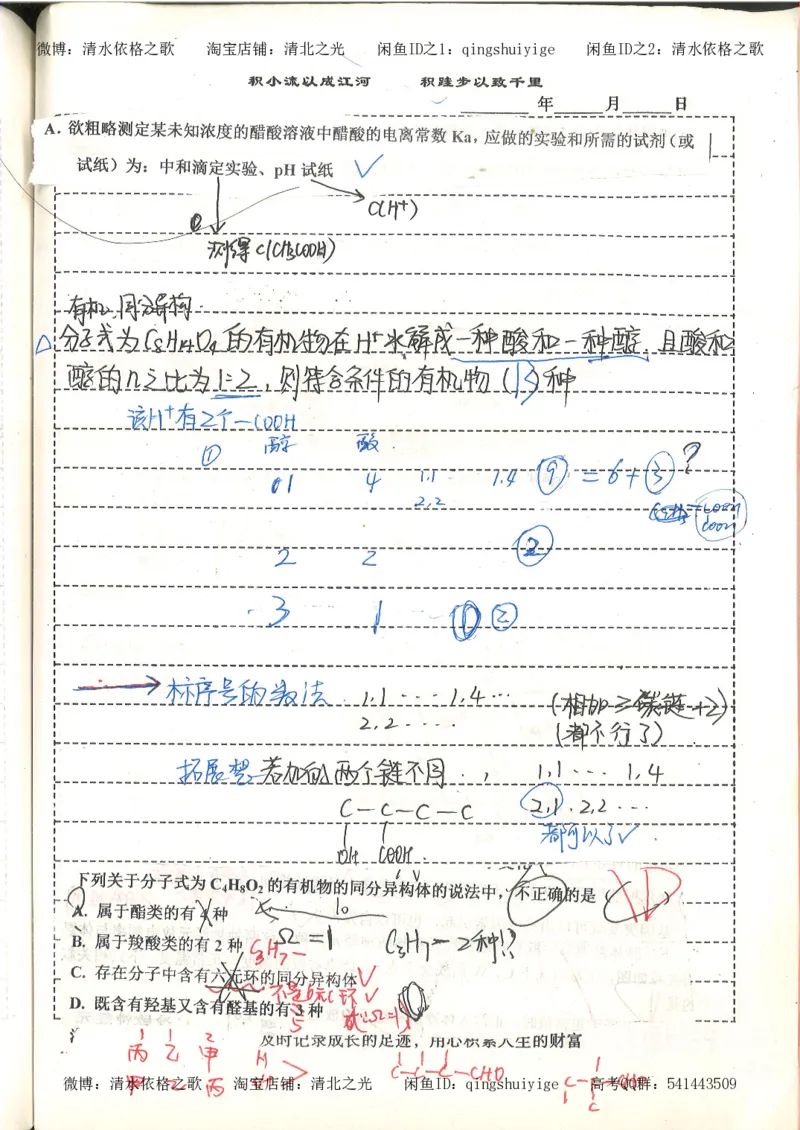 微博：清水依格之歌 淘宝店铺：清北之光 闲鱼ID之1：qingshuiyige 闲鱼ID之2：清水依格之歌
积小流以成江河 积跬步以致千里
年 月 日
A. 欲粗略测定某未知浓度的醋酸溶液中醋酸的电离常数 Ka，应做的实验和所需的试剂（或
试纸）为：中和滴定实验、pH 试纸 ✓
C(H⁺)
测得 C(CH₃COOH)
有机 同分异构
△ 分子式为C₈H₁₄O₄的有机物在H⁺水解成一种酸和一种醇，且酸和
醇的n之比为1:2，则符合条件的有机物（13）种
该H⁺有2个—COOH
① 醇 酸
1 4 1.1 1.4 ⑨ = 6+③ ?
2,2
COOH
COOH
2 2 ②
3 1 ②
标序号的数法 1,1 ··· 1,4 ··· (相加≥碳链+2)
2,2 ···· (都不行了)
拓展 若加的两个链不同， 1,1 ··· 1,4
C—C—C—C 2,1 . 2,2 ···
OH COOH 都可以了✓
下列关于分子式为 C₄H₈O₂ 的有机物的同分异构体的说法中，不正确的是（ D ）
A. 属于酯类的有 4 种
B. 属于羧酸类的有 2 种 C₃H₇— Ω=1 C₃H₇—2种!?
C. 存在分子中含有六元环的同分异构体 ✓
不是6元C环 ✓
D. 既含有羟基又含有醛基的有 3 种 5
及时记录成长的足迹，用心积累人生的财富
1 1 2
丙 乙 甲 H
甲 乙 丙 C—C—C—CHO
微博：清水依格之歌 淘宝店铺：清北之光 闲鱼ID：qingshuiyige 高考QQ群：541443509
C—C—CHO
C